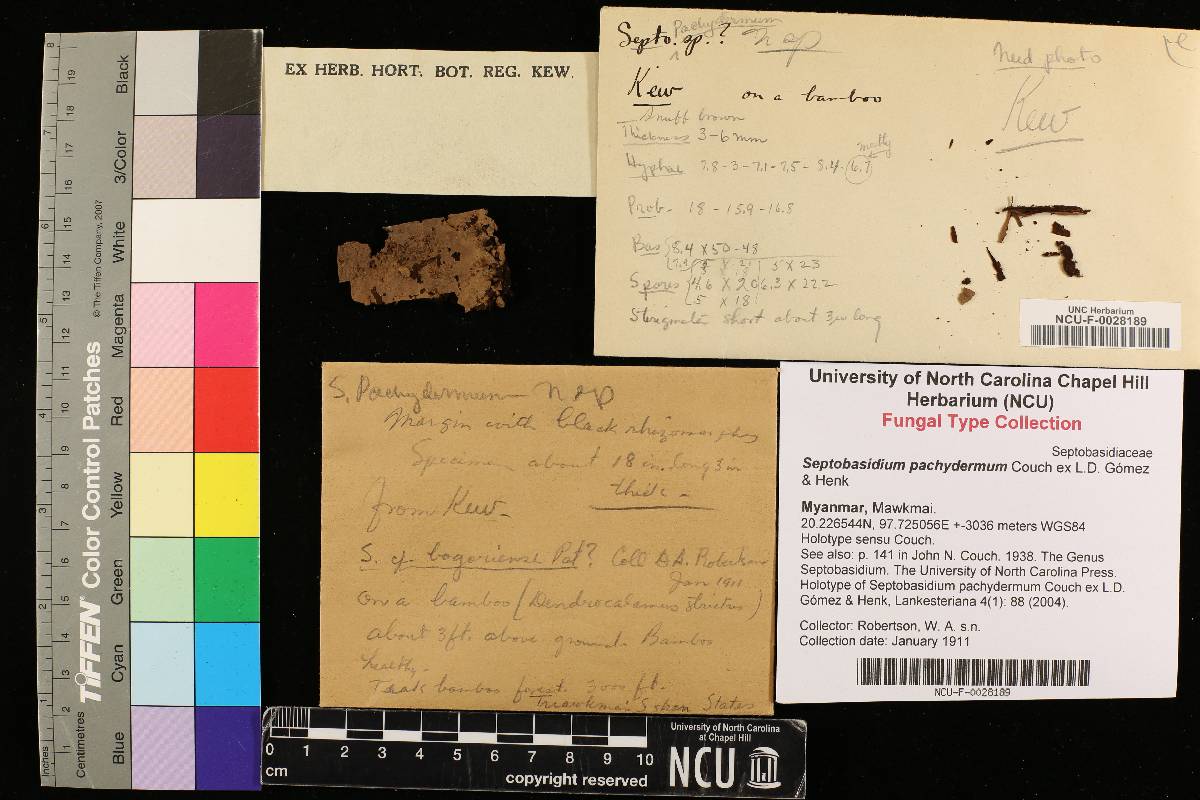 EX HERB. HORT. BOT. REG. KEW.
Pachydermum
Septo. sp.? n sp
Need photo
Kew on a bamboo
Kew
Snuff brown
Thickness 3-6 mm
mostly
Hyphae 7.8 - 3 - 7.1 - 7.5 - 8.4 - 6.7
Prob. 18 - 15.9 - 16.8
Bas 8.4 x 50 - 48
5 x 23
Spores 4.6 x 20 6.3 x 22.2
5 x 18
Sterigmata short about 3µ long
UNC Herbarium
NCU-F-0028189
S. Pachydermum n sp
Margin with black rhizomorphs
Specimen about 18 in. long 3 in
thick -
from Kew -
S. cf. bogoriense Pat? Coll. A. Robertson
Jan 1911
on a bamboo (Dendrocalamus strictus)
about 3 ft. above ground. Bamboo
healthy.
Teak bamboo forest. 3000 ft.
S. Shan States
University of North Carolina Chapel Hill
Herbarium (NCU)
Fungal Type Collection
Septobasidiaceae
Septobasidium pachydermum Couch ex L.D. Gómez
& Henk
Myanmar, Mawkmai.
20.226544N, 97.725056E +-3036 meters WGS84
Holotype sensu Couch.
See also: p. 141 in John N. Couch. 1938. The Genus
Septobasidium. The University of North Carolina Press.
Holotype of Septobasidium pachydermum Couch ex L.D.
Gómez & Henk, Lankesteriana 4(1): 88 (2004).
Collector: Robertson, W. A. s.n.
Collection date: January 1911
NCU-F-0028189
0 1 2 3 4 5 6 7 8 9 10
cm
copyright reserved
University of North Carolina
at Chapel Hill
NCU
TIFFEN® Color Control Patches
© The Tiffen Company, 2007
Inches
Centimetres
Blue
Cyan
Green
Yellow
Red
Magenta
White
3/Color
Black
1 2 3 4 5 6 7 8
1 2 5 6 7 8 9 10 11 12 13 14 15 16 17 18 19